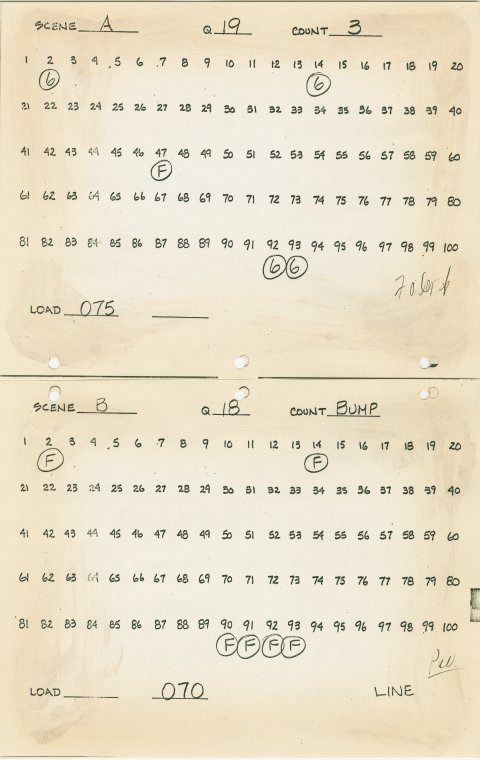 SCENE A Q 19 COUNT 3
1 2 3 4 5 6 7 8 9 10 11 12 13 14 15 16 17 18 19 20
6 6
21 22 23 24 25 26 27 28 29 30 31 32 33 34 35 36 37 38 39 40
41 42 43 44 45 46 47 48 49 50 51 52 53 54 55 56 57 58 59 60
F
61 62 63 64 65 66 67 68 69 70 71 72 73 74 75 76 77 78 79 80
81 82 83 84 85 86 87 88 89 90 91 92 93 94 95 96 97 98 99 100
6 6
LOAD 075
SCENE B Q 18 COUNT BUMP
1 2 3 4 5 6 7 8 9 10 11 12 13 14 15 16 17 18 19 20
F F
21 22 23 24 25 26 27 28 29 30 31 32 33 34 35 36 37 38 39 40
41 42 43 44 45 46 47 48 49 50 51 52 53 54 55 56 57 58 59 60
61 62 63 64 65 66 67 68 69 70 71 72 73 74 75 76 77 78 79 80
81 82 83 84 85 86 87 88 89 90 91 92 93 94 95 96 97 98 99 100
F F F F
LOAD 070 LINE